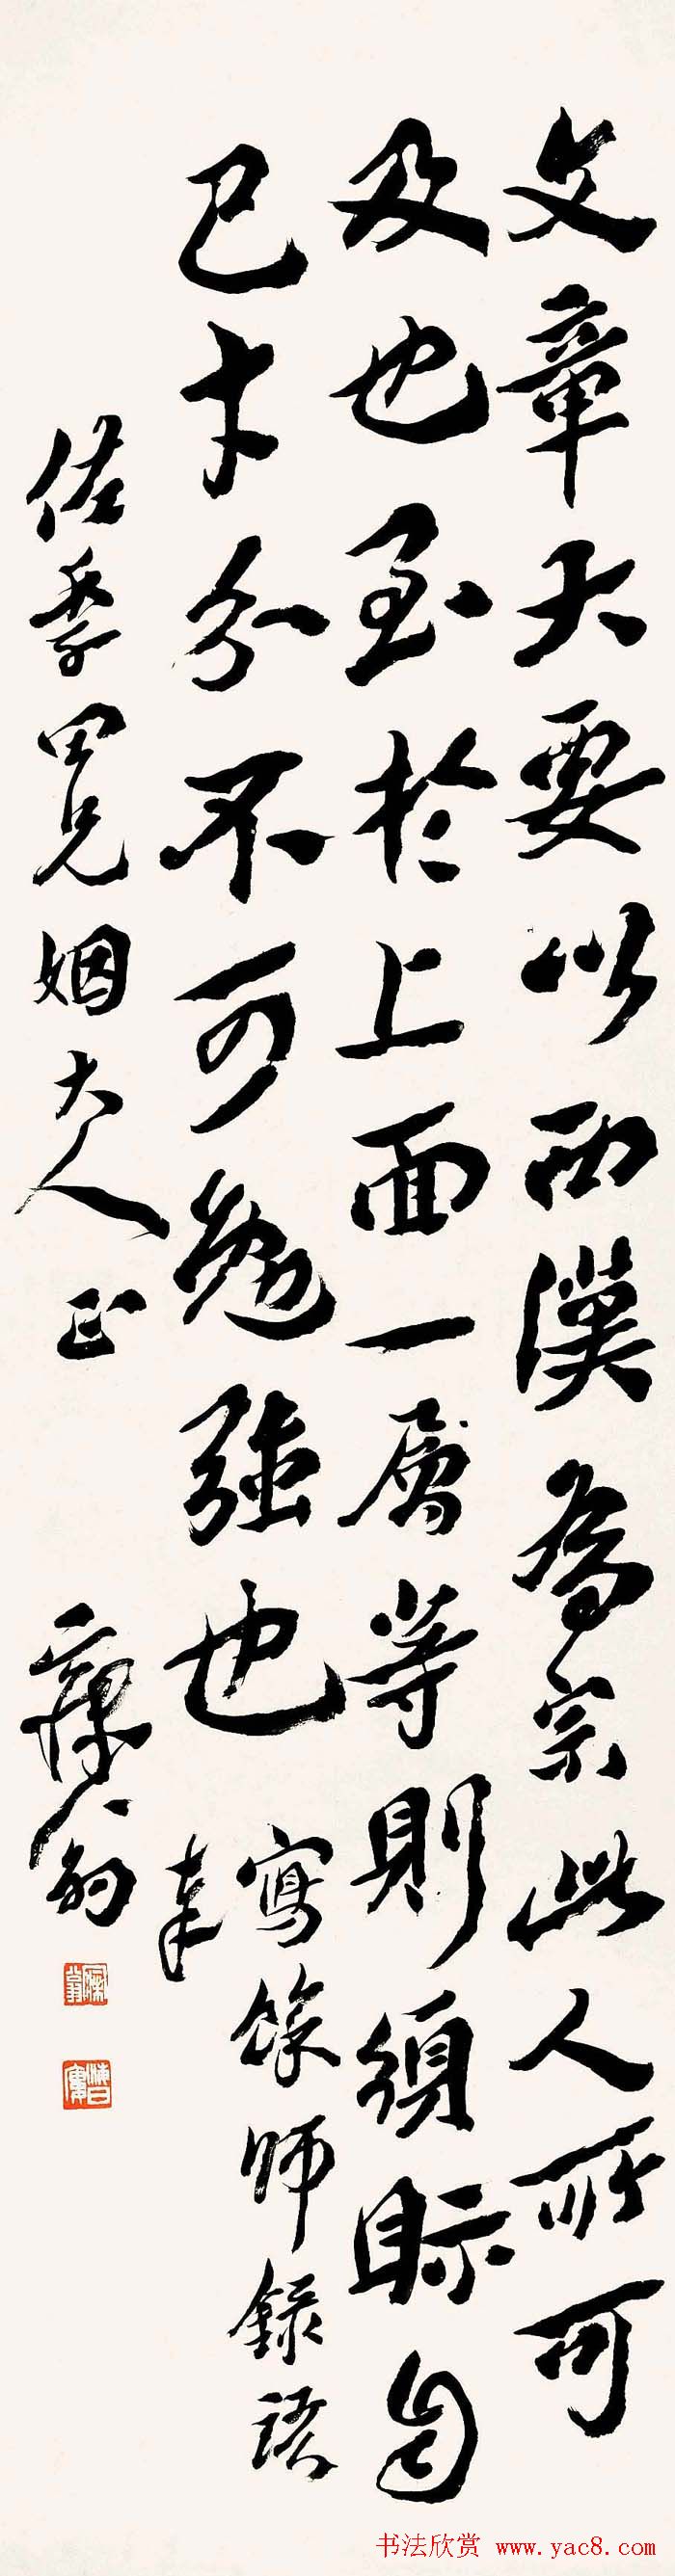 文章大要以西漢為宗此人所可
及也至於上面一層等則須眎自
己才分不可勉強也
寫餘師錄語
奉
佐季里兄姻大人正
書法欣赏 www.yac8.com